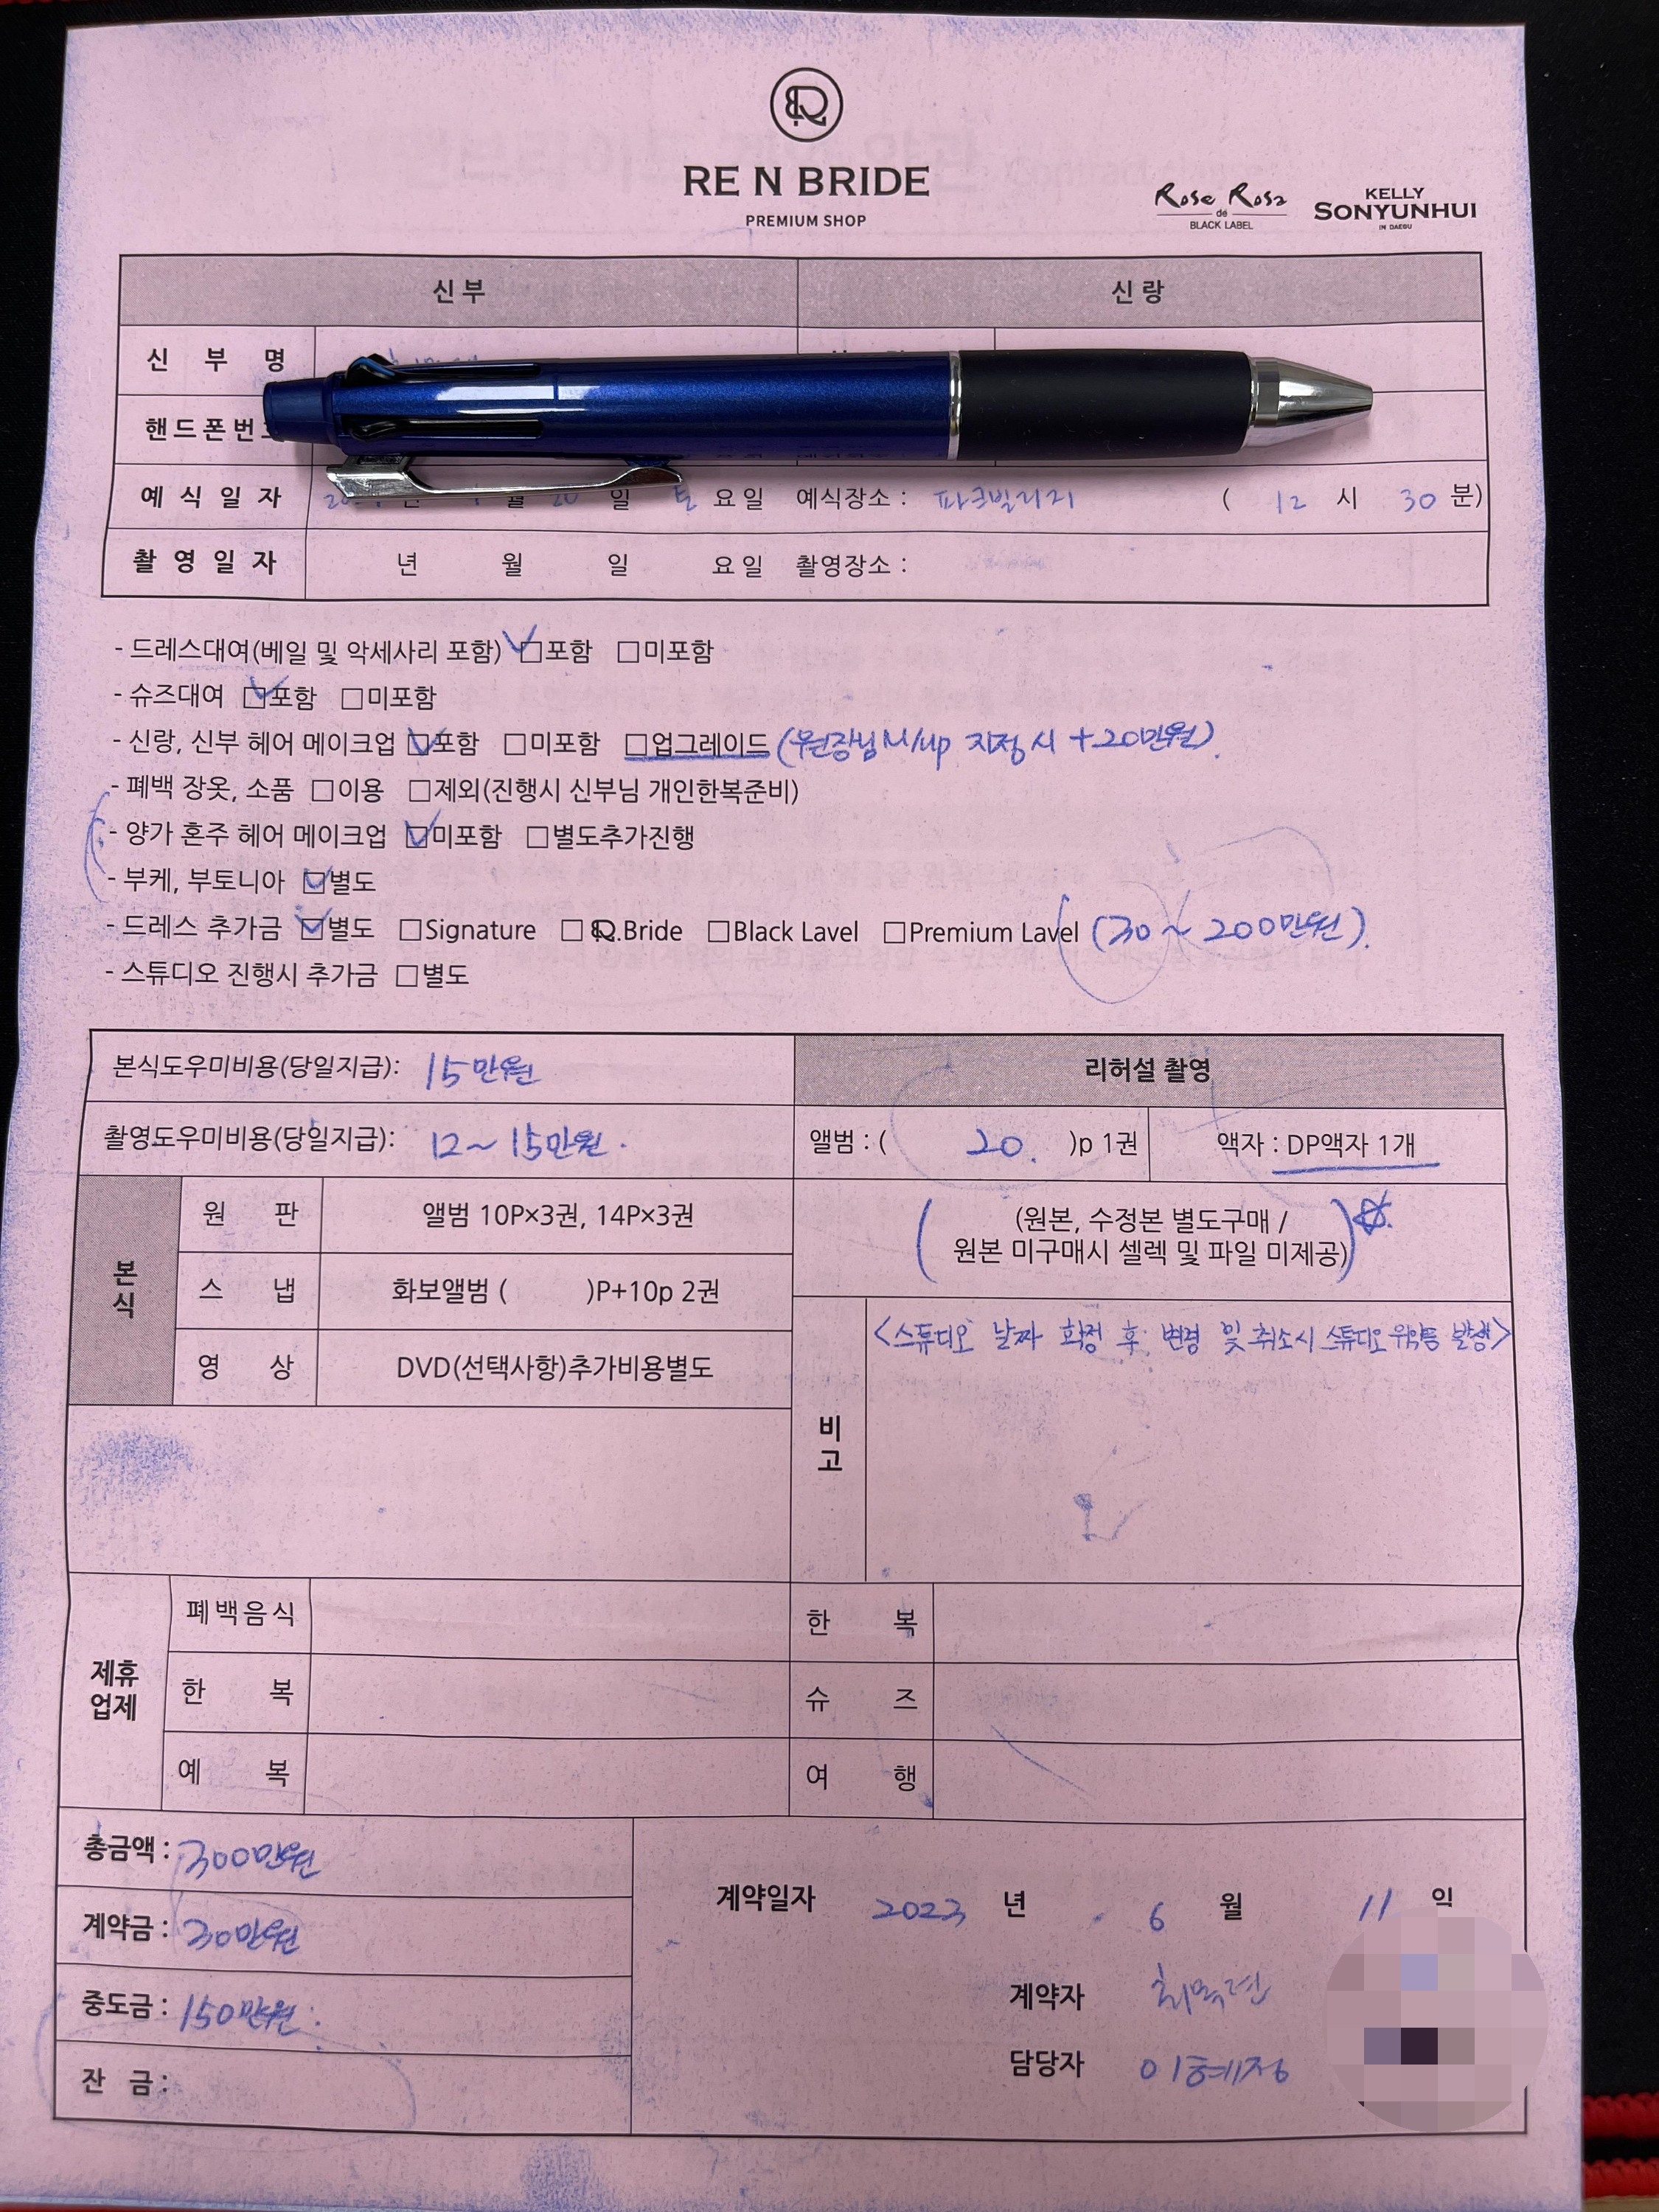 RE N BRIDE
PREMIUM SHOP
Rose Rosa
de
BLACK LABEL
KELLY
SONYUNHUI
IN DAEGU
신부 신랑
신 부 명
핸드폰번
예 식 일 자 월 20 일 토 요일 예식장소 : 파크빌리지 ( 12 시 30 분)
촬 영 일 자 년 월 일 요일 촬영장소 :
- 드레스대여(베일 및 악세사리 포함) ☑포함 □미포함
- 슈즈대여 ☑포함 □미포함
- 신랑, 신부 헤어 메이크업 ☑포함 □미포함 □업그레이드 (원장님 M/up 지정시 +20만원).
- 폐백 장옷, 소품 □이용 □제외(진행시 신부님 개인한복준비)
- 양가 혼주 헤어 메이크업 ☑미포함 □별도추가진행
- 부케, 부토니아 ☑별도
- 드레스 추가금 ☑별도 □Signature □R.Bride □Black Lavel □Premium Lavel (30~200만원).
- 스튜디오 진행시 추가금 □별도
본식도우미비용(당일지급): 15만원 리허설 촬영
촬영도우미비용(당일지급): 12~15만원. 앨범 : ( 20. )p 1권 액자 : DP액자 1개
본식
원 판 앨범 10P×3권, 14P×3권
(원본, 수정본 별도구매 /
원본 미구매시 셀렉 및 파일 미제공)
스 냅 화보앨범 ( )P+10p 2권
영 상 DVD(선택사항)추가비용별도
비고
<스튜디오 날짜 확정 후 변경 및 취소시 스튜디오 위약금 발생>
제휴
업제
폐백음식 한 복
한 복 슈 즈
예 복 여 행
총금액 : 300만원
계약금 : 30만원
중도금 : 150만원.
잔 금 :
계약일자 2023 년 6 월 11 일
계약자 최목련
담당자 이혜정